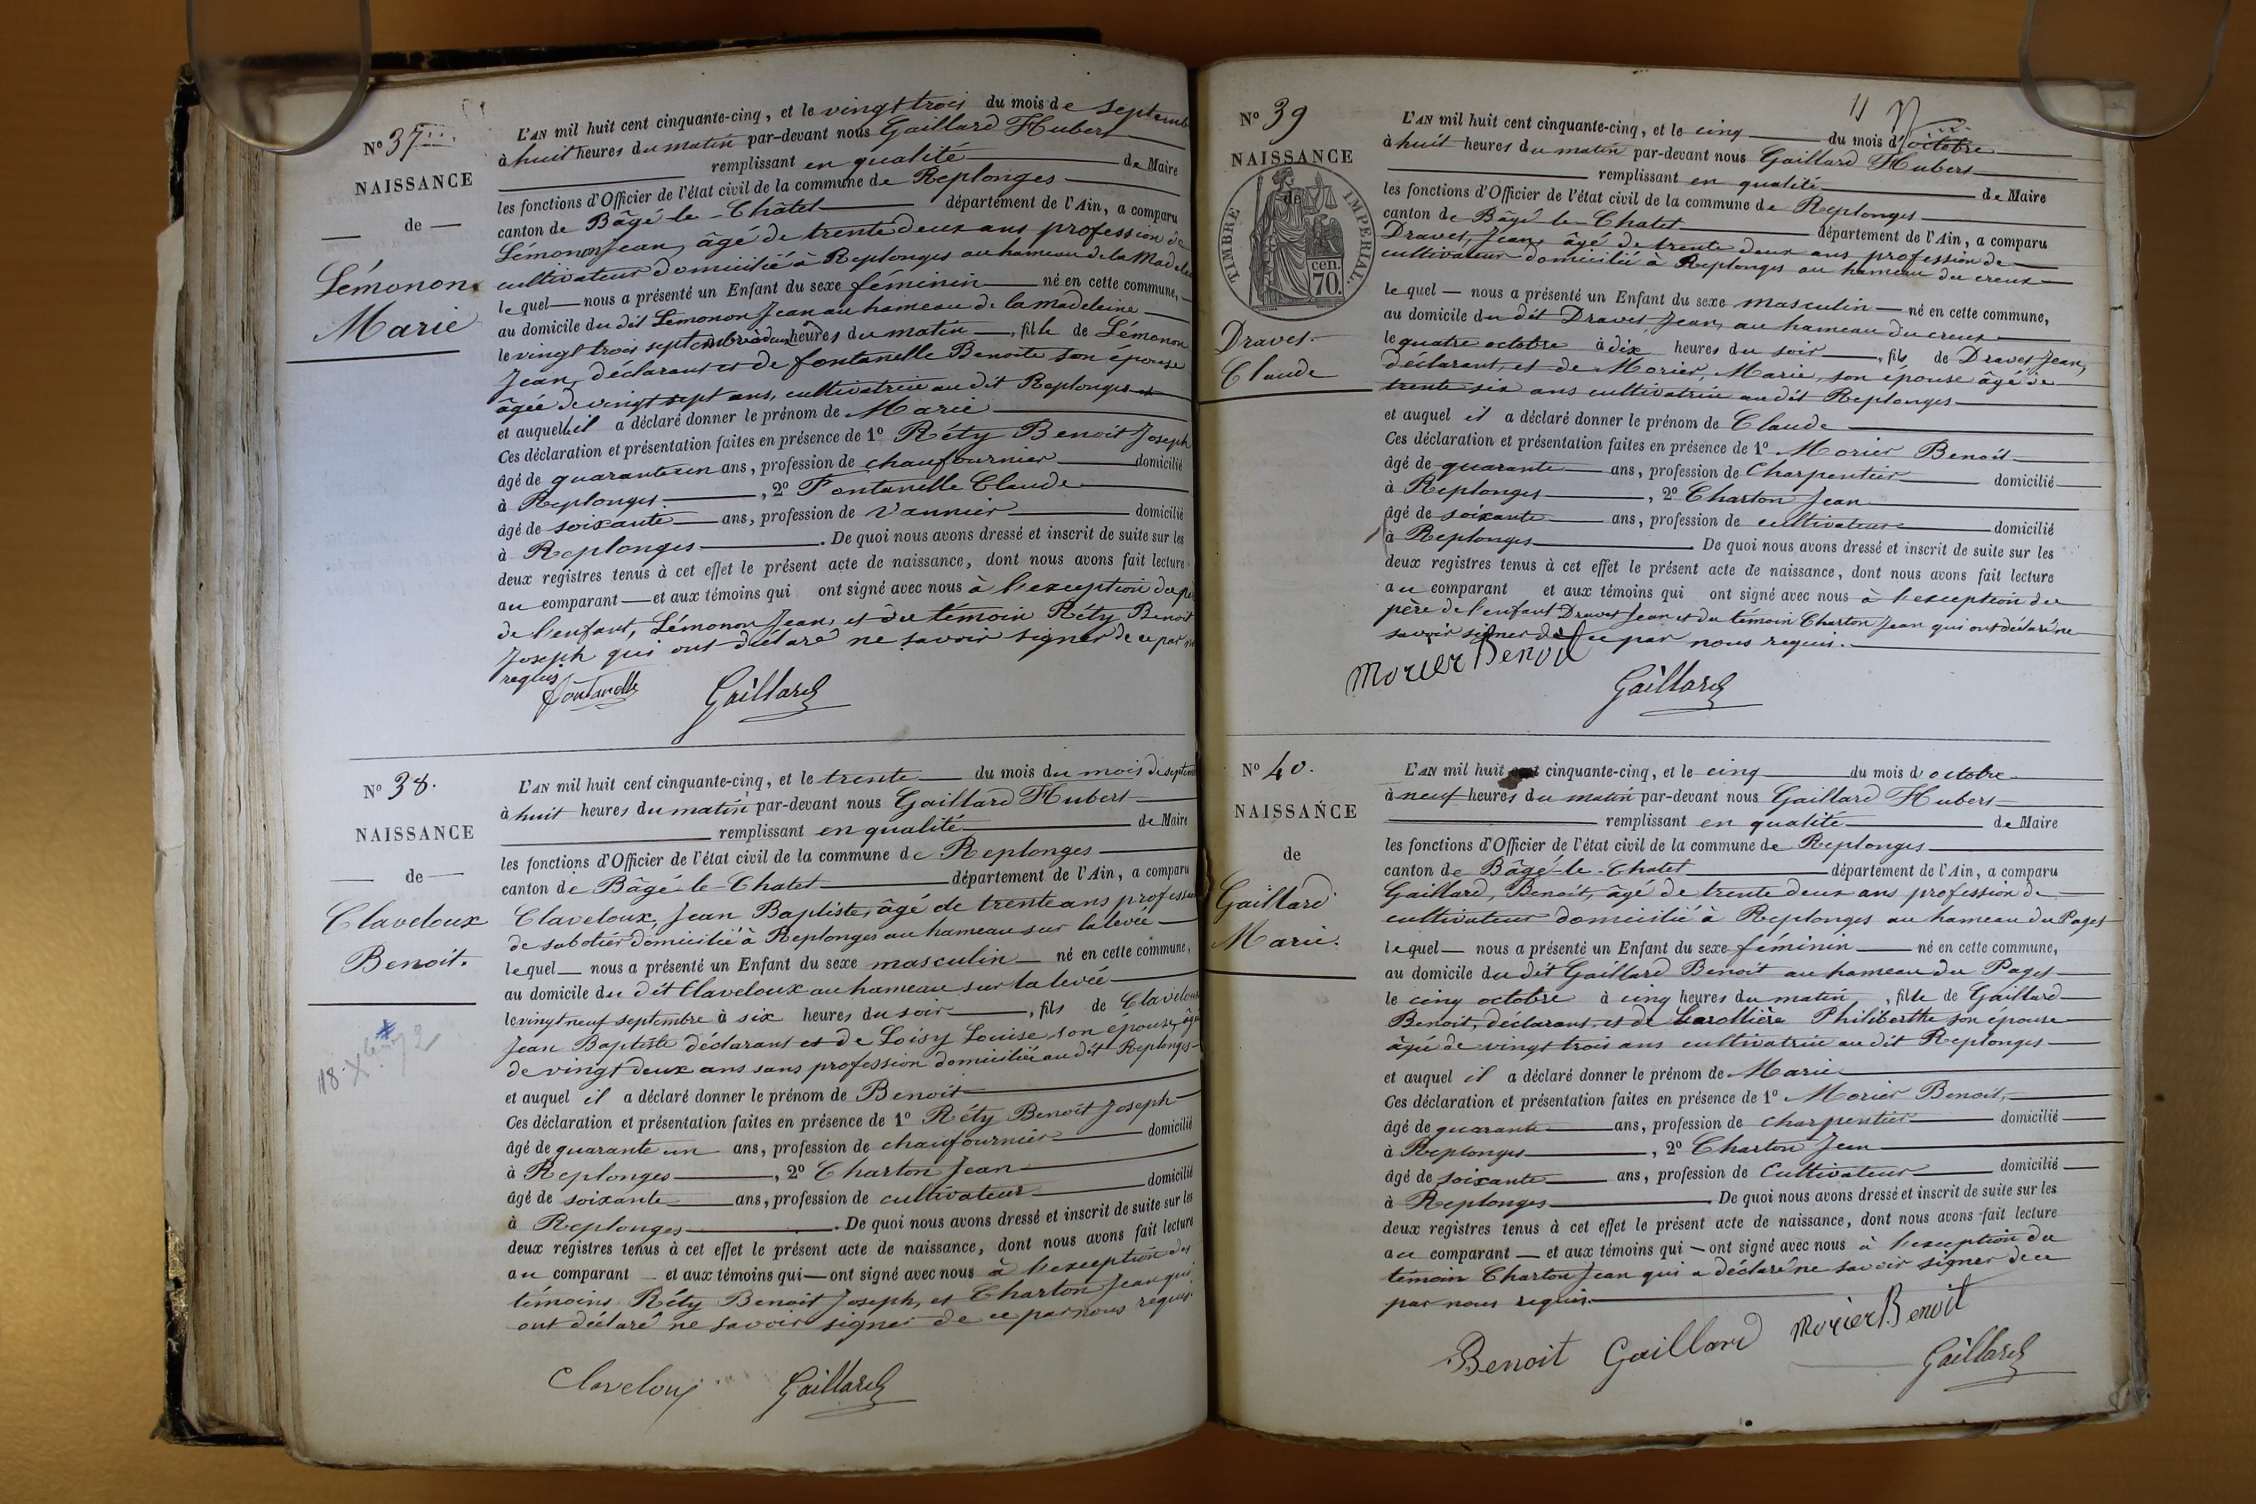 N° 37
NAISSANCE
de
Lémonon
Marie
L'AN mil huit cent cinquante-cinq, et le vingt trois du mois de septemb
à huit heures du matin par-devant nous Gaillard Hubert
remplissant en qualité de Maire
les fonctions d'Officier de l'état civil de la commune de Replonges
canton de Bâgé-le-Châtel département de l'Ain, a comparu
Lémonon Jean, âgé de trente deux ans profession de
cultivateur domicilié à Replonges au hameau de la Madelei
lequel nous a présenté un Enfant du sexe féminin né en cette commune,
au domicile du dit Lémonon Jean au hameau de la madeleine
le vingt trois septembre à deux heures du matin, fille de Lémonon
Jean, déclarant et de fontanelle Benoite son épouse
âgée de vingt sept ans, cultivatrice au dit Replonges
et auquel il a déclaré donner le prénom de Marie
Ces déclaration et présentation faites en présence de 1° Réty Benoit Joseph
âgé de quarante un ans, profession de chaufournier domicilié
à Replonges, 2° Fontanelle Claude
âgé de soixante ans, profession de vannier domicilié
à Replonges. De quoi nous avons dressé et inscrit de suite sur les
deux registres tenus à cet effet le présent acte de naissance, dont nous avons fait lecture
au comparant et aux témoins qui ont signé avec nous à l'exception du
de l'enfant, Lémonon Jean, et du témoin Réty Benoit
Joseph qui ont déclaré ne savoir signer de ce par
requis
fontanelle Gaillard
N° 38.
NAISSANCE
de
Claveloux
Benoit.
18. Xbre 72
L'AN mil huit cent cinquante-cinq, et le trente du mois du mois de septem
à huit heures du matin par-devant nous Gaillard Hubert
remplissant en qualité de Maire
les fonctions d'Officier de l'état civil de la commune de Replonges
canton de Bâgé-le-Chatel département de l'Ain, a comparu
Claveloux, Jean Baptiste, âgé de trente ans profession
de sabotier domicilié à Replonges au hameau sur la levée
lequel nous a présenté un Enfant du sexe masculin né en cette commune,
au domicile du dit Claveloux au hameau sur la levée
le vingt neuf septembre à six heures du soir, fils de Claveloux
Jean Baptiste déclarant et de Loisy Louise son épouse, âgé
de vingt deux ans sans profession domiciliée au dit Replonges
et auquel il a déclaré donner le prénom de Benoit
Ces déclaration et présentation faites en présence de 1° Réty Benoit Joseph
âgé de quarante un ans, profession de chaufournier domicilié
à Replonges, 2° Charton Jean
âgé de soixante ans, profession de cultivateur domicilié
à Replonges. De quoi nous avons dressé et inscrit de suite sur les
deux registres tenus à cet effet le présent acte de naissance, dont nous avons fait lecture
au comparant et aux témoins qui ont signé avec nous à l'exception des
témoins Réty Benoit Joseph, et Charton Jean qui
ont déclaré ne savoir signer de ce par nous requis.
Claveloux Gaillard
N° 39
NAISSANCE
de
TIMBRE IMPERIAL.
cen. 70.
Dravet
Claude
L'AN mil huit cent cinquante-cinq, et le cinq du mois d'octobre
à huit heures du matin par-devant nous Gaillard Hubert
remplissant en qualité de Maire
les fonctions d'Officier de l'état civil de la commune de Replonges
canton de Bâgé-le-Chatel département de l'Ain, a comparu
Dravet, Jean, âgé de trente deux ans profession de
cultivateur domicilié à Replonges au hameau du creux
lequel nous a présenté un Enfant du sexe masculin né en cette commune,
au domicile du dit Dravet Jean, au hameau du creux
le quatre octobre à dix heures du soir, fils de Dravet Jean,
déclarant, et de Morier, Marie, son épouse âgé de
trente six ans cultivatrice au dit Replonges
et auquel il a déclaré donner le prénom de Claude
Ces déclaration et présentation faites en présence de 1° Morier Benoit
âgé de quarante ans, profession de Charpentier domicilié
à Replonges, 2° Charton Jean
âgé de soixante ans, profession de cultivateur domicilié
à Replonges. De quoi nous avons dressé et inscrit de suite sur les
deux registres tenus à cet effet le présent acte de naissance, dont nous avons fait lecture
au comparant et aux témoins qui ont signé avec nous à l'exception du
père de l'enfant Dravet Jean et du témoin Charton Jean qui ont déclaré ne
savoir signer de ce par nous requis.
Morier Benoit
Gaillard
N° 40.
NAISSANCE
de
Gaillard
Marie.
L'AN mil huit cent cinquante-cinq, et le cinq du mois d'octobre
à neuf heures du matin par-devant nous Gaillard Hubert
remplissant en qualité de Maire
les fonctions d'Officier de l'état civil de la commune de Replonges
canton de Bâgé-le-Chatel département de l'Ain, a comparu
Gaillard, Benoit, âgé de trente deux ans profession de
cultivateur domicilié à Replonges au hameau du Paget
lequel nous a présenté un Enfant du sexe féminin né en cette commune,
au domicile du dit Gaillard Benoit au hameau du Paget
le cinq octobre à cinq heures du matin, fille de Gaillard
Benoit, déclarant, et de Larollière Philiberthe son épouse
âgée de vingt trois ans cultivatrice au dit Replonges
et auquel il a déclaré donner le prénom de Marie
Ces déclaration et présentation faites en présence de 1° Morier Benoit,
âgé de quarante ans, profession de charpentier domicilié
à Replonges, 2° Charton Jean
âgé de soixante ans, profession de Cultivateur domicilié
à Replonges. De quoi nous avons dressé et inscrit de suite sur les
deux registres tenus à cet effet le présent acte de naissance, dont nous avons fait lecture
au comparant et aux témoins qui ont signé avec nous à l'exception du
témoin Charton Jean qui a déclaré ne savoir signer de ce
par nous requis.
Benoit Gaillard Morier Benoit
Gaillard